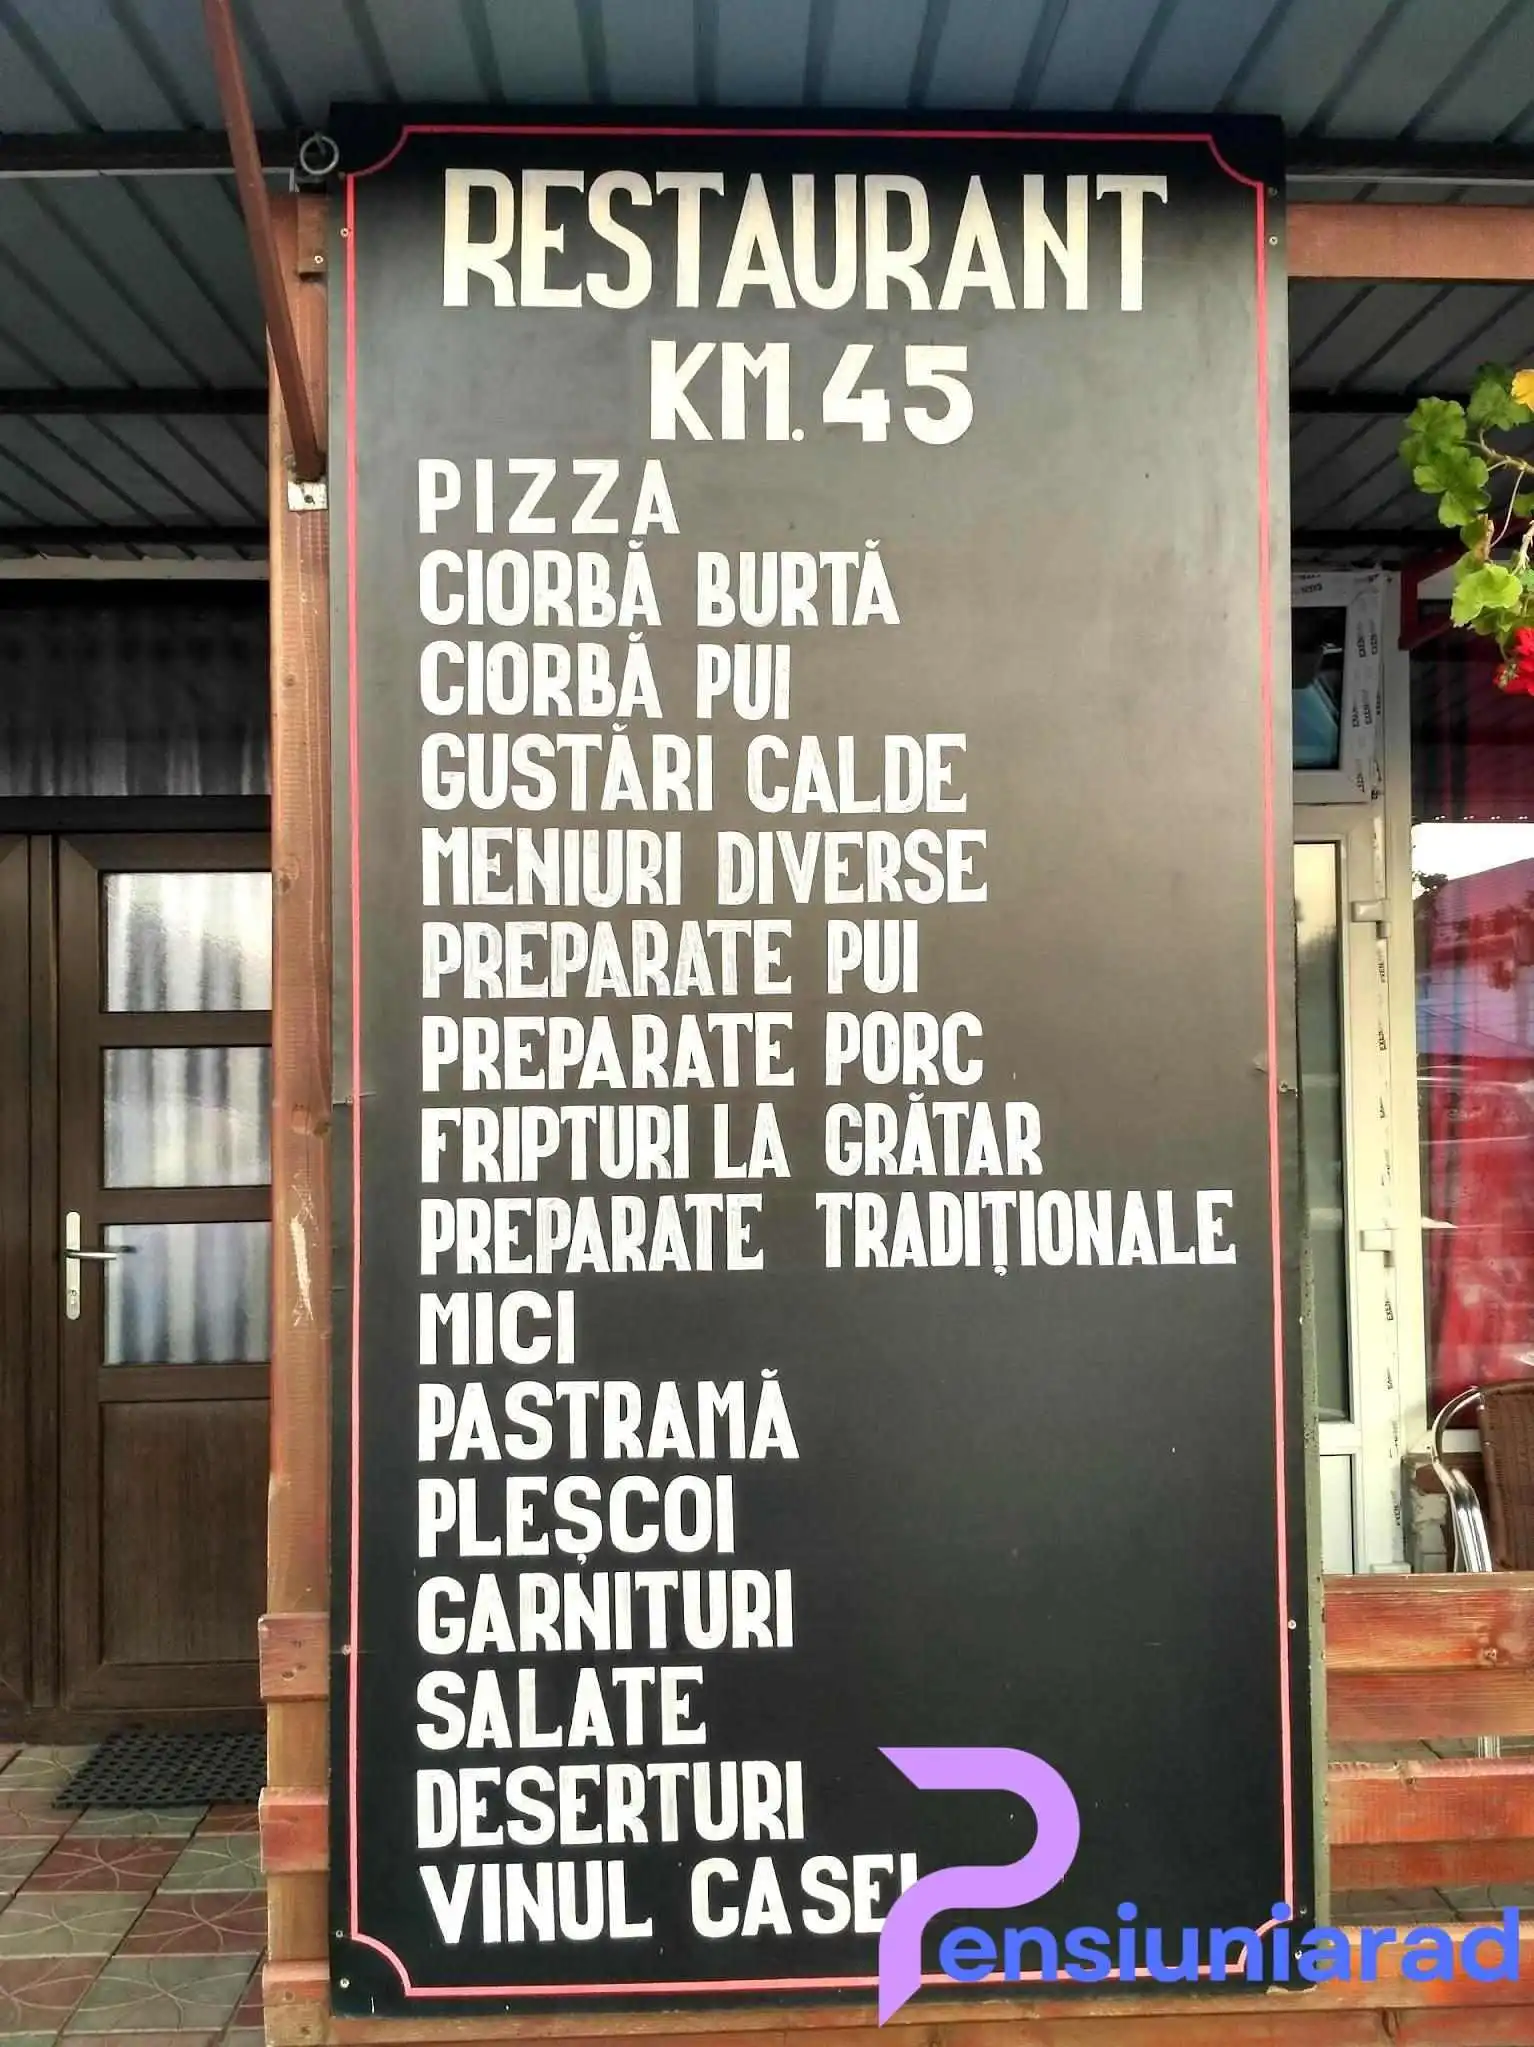 RESTAURANT
KM. 45
PIZZA
CIORBĂ BURTĂ
CIORBĂ PUI
GUSTĂRI CALDE
MENIURI DIVERSE
PREPARATE PUI
PREPARATE PORC
FRIPTURI LA GRĂTAR
PREPARATE TRADIȚIONALE
MICI
PASTRAMĂ
PLEȘCOI
GARNITURI
SALATE
DESERTURI
VINUL CASEI
Pensiuniarad